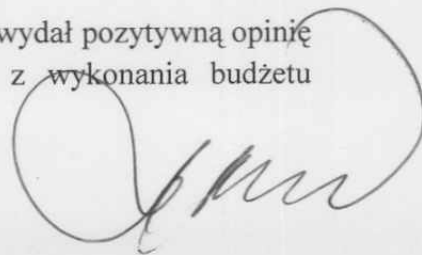 wydał pozytywną opinię
z wykonania budżetu